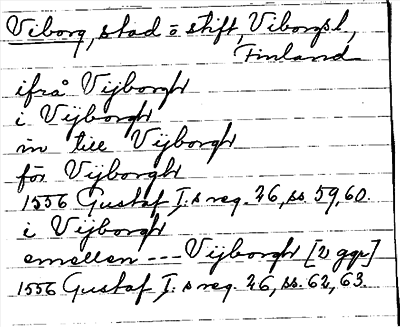 Viborg, stad o stift, Viborgsl,
Finland
ifrå Vijborgh
i Vijborgh
in till Vijborgh
för Vijborgh
1556 Gustaf I:s reg. 26, ss. 59, 60.
i Vijborgh
emellen --- Vijborgh [2 ggr]
1556 Gustaf I:s reg. 26, ss. 62, 63.